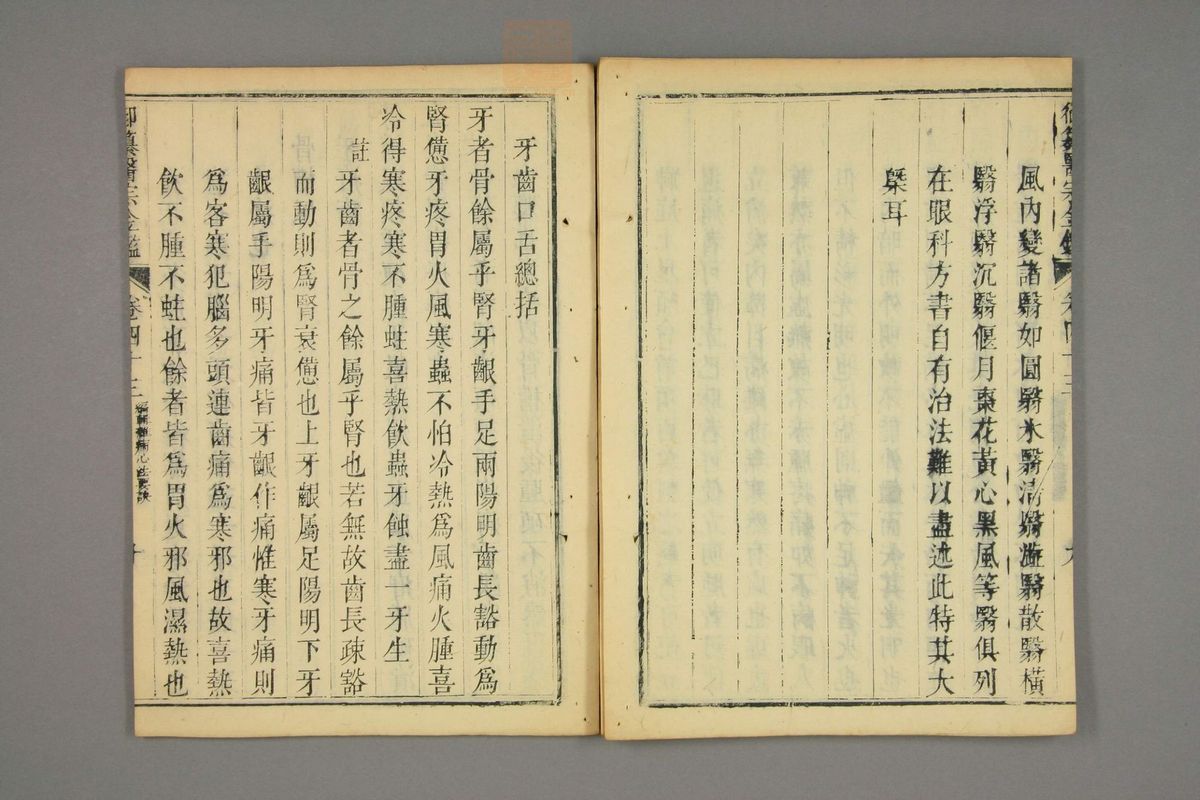 風內變諸翳如圓翳氷翳滑翳澁翳散翳橫
翳浮翳沉翳偃月棗花黃心黑風等翳俱列
在眼科方書自有治法難以盡述此特其大
槩耳
牙齒口舌總括
牙者骨餘屬乎腎牙齦手足兩陽明齒長豁動為
腎憊牙疼胃火風寒蟲不怕冷熱為風痛火腫喜
冷得寒疼寒不腫蛀喜熱飲蟲牙蝕盡一牙生
註牙齒者骨之餘屬乎腎也若無故齒長疎豁
而動則為腎衰憊也上牙齦屬足陽明下牙
齦屬手陽明牙痛皆牙齦作痛惟寒牙痛則
為客寒犯腦多頭連齒痛為寒邪也故喜熱
飲不腫不蛀也餘者皆為胃火邪風濕熱也
御纂醫宗金鑑 卷四十三